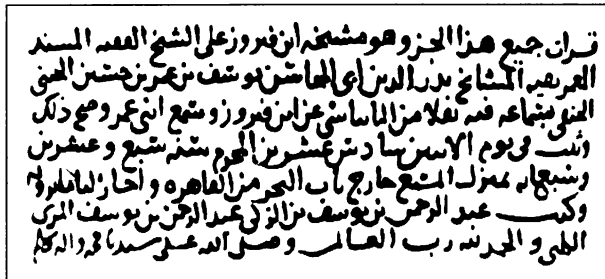 قرات جميع هذا الجزو هو مشيخه ابن فيروز على الشيخ الفقيه المسند
بقيه المشايخ بدر الدين ابى المحاسن يوسف بن عمر بن حسين الختنى
الحنفى بسماعه فيه نقلا من ابن فيروز وسمع ابنى عمر وصح ذلك
وثبت فى يوم الاثنين سادس عشرين المحرم سنه سبع وعشرين
وسبعمايه بمنزل المسمع خارج باب البحر من القاهره واجاز لنا مايرويه
وكتب عبد الرحمن بن يوسف بن الزكى عبد الرحمن بن يوسف المزى
الحلبى والحمد لله رب العالمين وصلى الله على سيدنا محمد واله وسلم